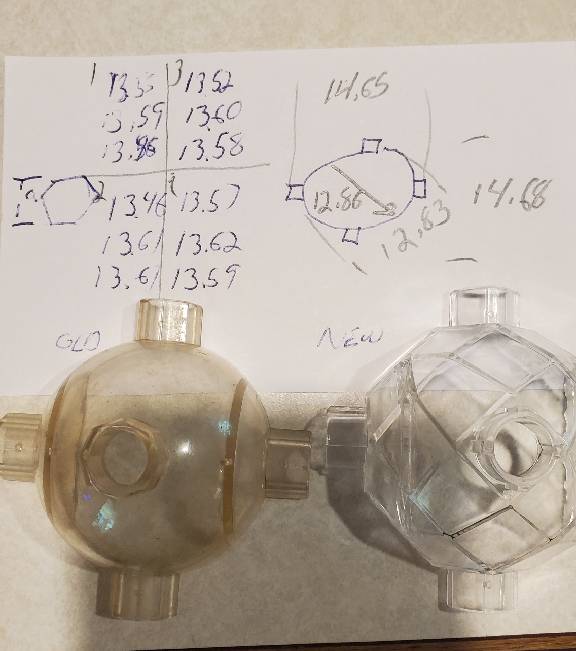 1
3 13.52
13.59 13.60
13.86 13.58
2 13.46 13.57
13.61 13.62
13.61 13.59
14.65
12.86
12.83
14.68
OLD
NEW